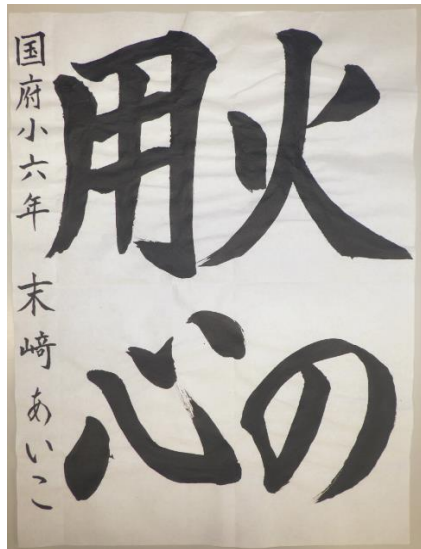 火の
用心
国府小六年 末﨑あいこ